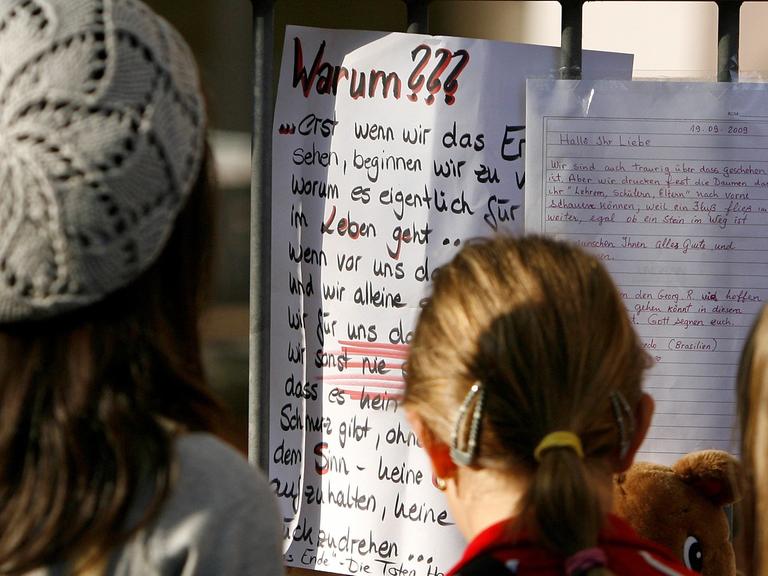 Warum???
...erst wenn wir das
sehen, beginnen wir zu
worum es eigentlich für
im Leben geht ...
wenn vor uns
und wir alleine
wir für uns
wir sonst nie
dass es kein
Schmerz gibt, ohne
dem Sinn - keine
aufzuhalten, keine
ückzudrehen ...
s Ende" - Die Toten
19.09.2009
Hallo Ihr Liebe
Wir sind auch traurig über dass geschehen
ist. Aber wir drucken fest die Daumen das
ihr "Lehrern, Schülern, Eltern" nach vorne
schauen können, weil ein Fluß
weiter, egal ob ein Stein im Weg ist
wünschen Ihnen alles Gute und
en.
n den Georg. R. und hoffen
gehen könnt in diesem
t. Gott segnen euch.
do (Brasilien)